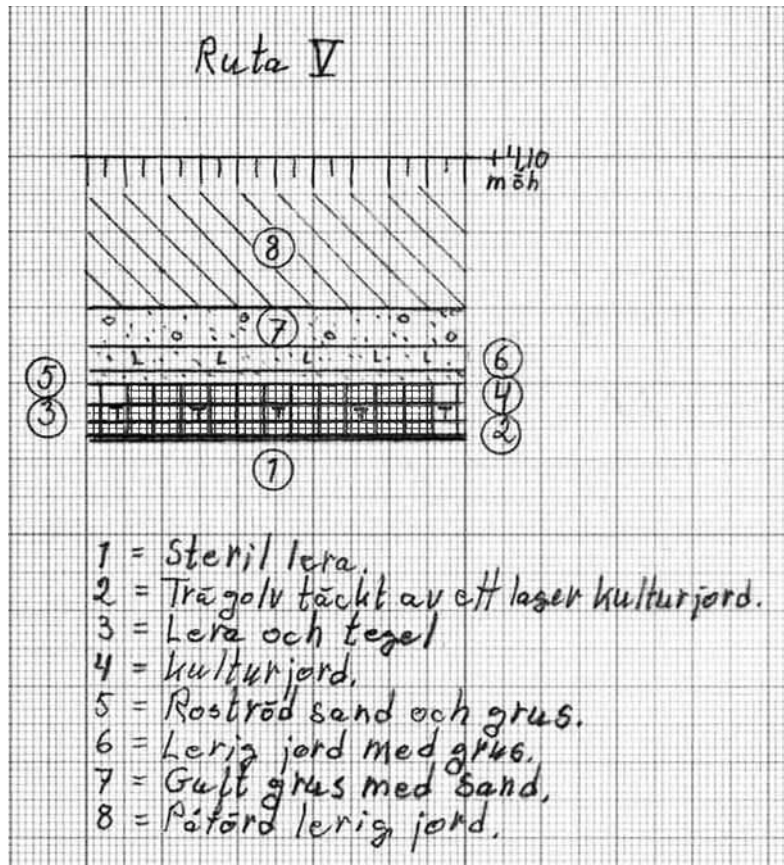 Ruta V
+4,10
m öh
8
7
6
5
4
3
2
1
1 = Steril lera.
2 = Trägolv täckt av ett lager kulturjord.
3 = Lera och tegel
4 = kulturjord.
5 = Roströd sand och grus.
6 = Lerig jord med grus.
7 = Gult grus med sand.
8 = Påförd lerig jord.